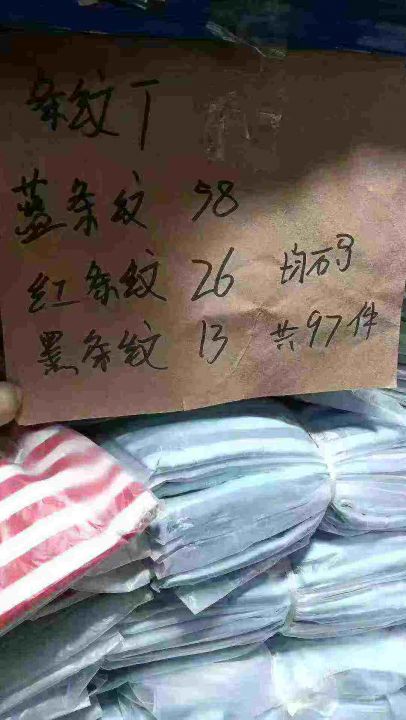 条纹T
蓝条纹 58
红条纹 26 均码
黑条纹 13 共97件